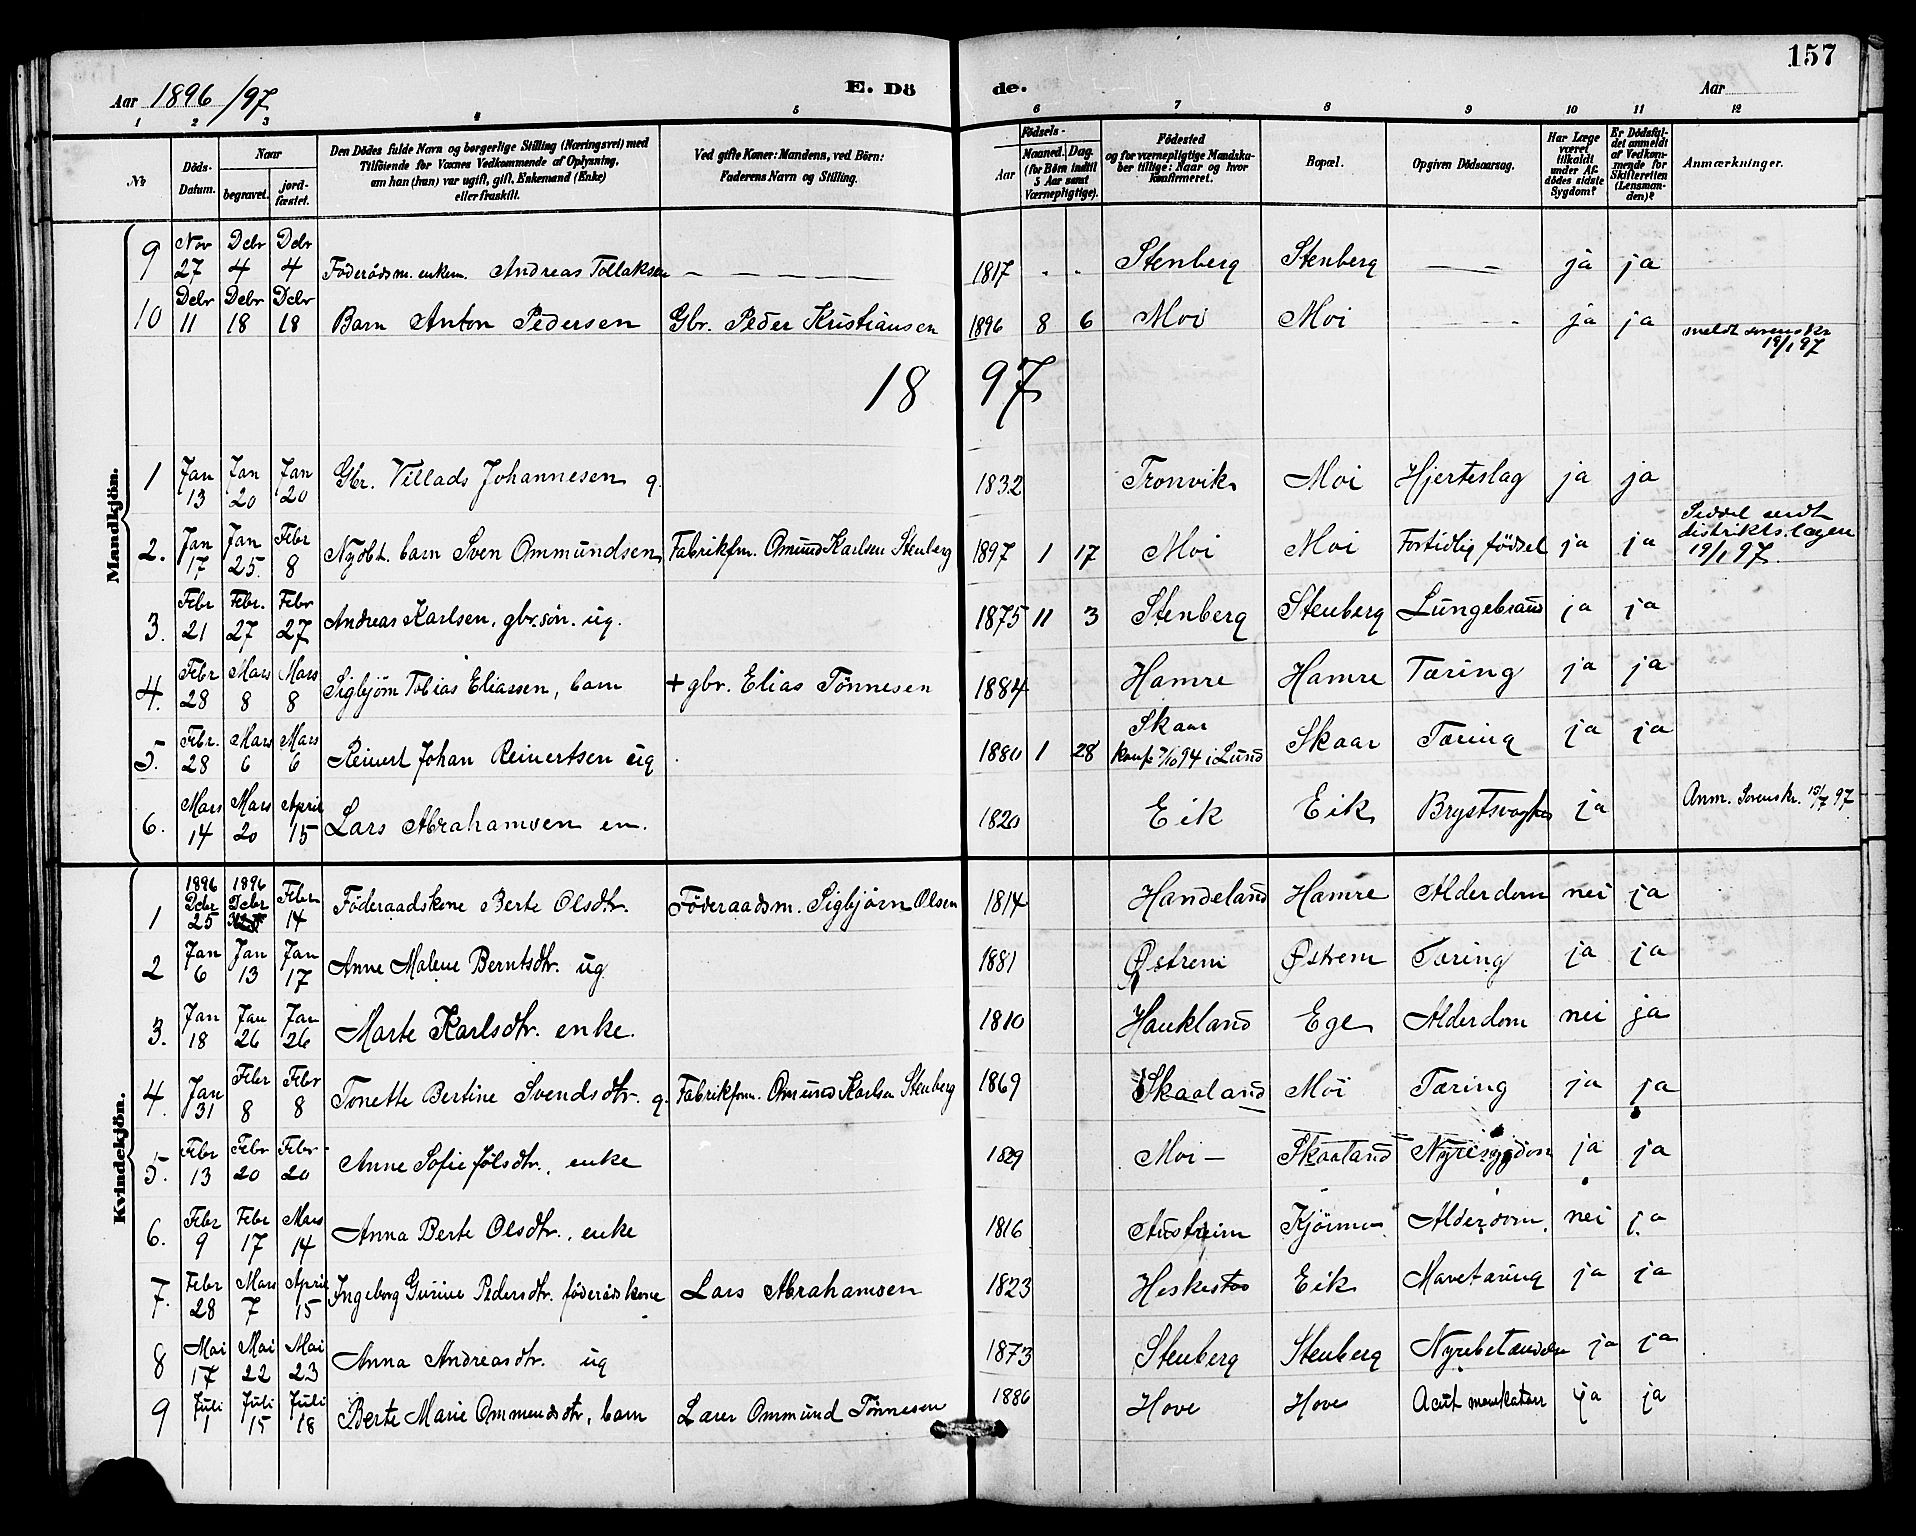 157
Aar 1896/97 E. Dö de. Aar
1 2 3 4 5 6 7 8 9 10 11 12
№
Döds-Datum.
Naar
begravet.
jord-fæstet.
Den Dödes fulde Navn og borgerlige Stilling (Næringsvei) med
Tilföiende for Voxnes Vedkommende af Oplysning,
om han (hun) var ugift, gift, Enkemand (Enke)
eller fraskilt.
Ved gifte Koner: Mandens, ved Börn:
Faderens Navn og Stilling.
Födsels-
Aar
Maaned. Dag.
(for Börn indtil
5 Aar samt
Værnepligtige).
Födested
og for værnepligtige Mandska-
ber tillige: Naar og hvor
konfirmeret.
Bopæl.
Opgiven Dödsaarsag.
Har Læge
været
tilkaldt
under Af-
dödes sidste
Sygdom?
Er Dödsfal-
det anmeldt
af Vedkom-
mende for
Skifteretten
(Lensman-
den)?
Anmærkninger.
Mandkjön.
9 Nov 27 Debr 4 Debr 4 Föderådsm. enkem. Andreas Tollaksen — — — — — 1817 - - Stenberg Stenberg — — ja ja
10 Debr 11 Debr 18 Debr 18 Barn Anton Pedersen Gbr. Peder Kristiansen 1896 8 6 Moi Moi - ja ja meldt sorenskr 19/1 97
18 97
1 Jan 13 Jan 20 Jan 20 Gbr. Villads Johannesen g. 1832 Tronvik Moi Hjerteslag ja ja
2. Jan 17 Jan 25. Febr 8 Nydbt. barn Sven Ommundsen Fabrikfm. Omund Karlsen Stenberg 1897 1 17 Moi Moi Fortidlig födsel ja ja Seddel sendt distriktslægen 19/1 97.
3. Febr 21 Febr. 27 Febr 27 Andreas Karlsen, gbr.sön. ug. 1875 11 3 Stenberg Stenberg Lungebrand ja ja
4. Febr 28 Mars 8 Mars 8 Sigbjörn Tobias Eliassen, barn + gbr. Elias Tönnesen 1884 Hamre Hamre Tæring ja ja
5. Febr. 28 Mars 6 Mars 6 Reinert Johan Reinertsen ug 1880 1 28 Skaar konf. 7/10 94 i Lund Skaar Tæring ja ja
6. Mars 14 Mars 20 April 15 Lars Abrahamsen en. 1820 Eik Eik Brystsvaghed ja Anm. Sorenskr. 13/7 97
Kvindekjön.
1 1896 Debr 25 1896 Debr Febr 14 Föderaadskone Berte Olsdtr. Föderaadsm. Sigbjørn Olsen 1814 Handeland Hamre Alderdom nei ja
2 Jan 6 Jan 13 Jan 17 Anne Malene Berntsdtr. ug 1881 Østrem Østrem Tæring ja ja
3. Jan 18 Jan 26 Jan 26 Marte Karlsdtr. enke. 1810 Haukland Ege Alderdom nei ja
4. Jan 31 Febr 8 Febr 8 Tonette Bertine Svendsdtr. g. Fabrikfm. Omund Karlsen Stenberg 1869 Skaaland Moi Tæring ja ja
5. Febr 13 Febr 20 Febr 20 Anne Sofie Jølsdtr., enke 1829 Moi — Skaaland Nyresygdom ja ja
6. Febr 9 Febr 17 Mars 14 Anna Berte Olsdtr., enke 1816 Austreim Kjörmo Alderdom. nei ja
7. Febr 28 Mars 7 April 15 Ingeborg Gurine Pedersdtr. föderådskone Lars Abrahamsen 1823 Heskestad Eik Mavetæring ja ja
8 Mai 17 Mai 22 Mai 23 Anna Andreasdtr. ug 1873 Stenberg Stenberg Nyrebetændelse ja ja
9 Juli 1 Juli 15 Juli 18 Berte Marie Ommundsdtr, barn Lærer Ommund Tönnesen 1886 Hove Hove Acut mavekatarr ja ja